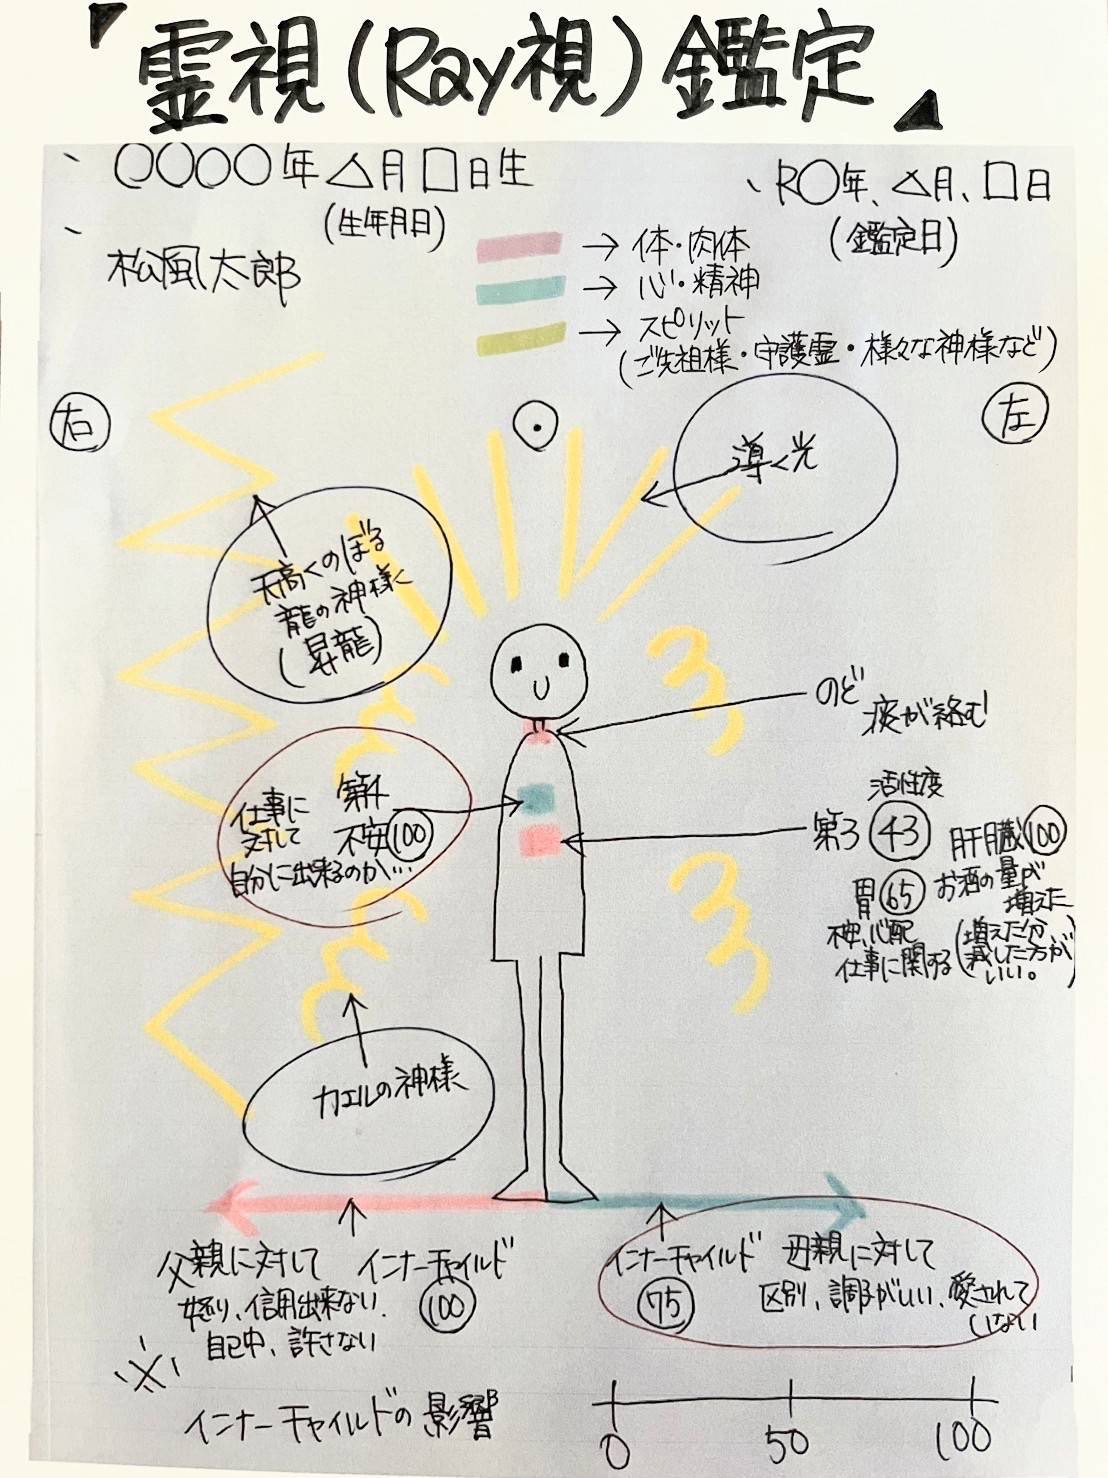 『霊視(Ray視)鑑定』
、〇〇〇〇年△月□日生
(生年月日)
、R〇年、△月、□日
(鑑定日)
、松風太郎
→体・肉体
→心・精神
→スピリット
(ご先祖様・守護霊・様々な神様など)
右
左
導く光
天高くのぼる
龍の神様
(昇龍)
のど
痰が絡む
仕事に
対して
自分に出来るのか…
第4
不安100
活性度
第3 43
肝臓100
お酒の量が
増えた
(増えた分、
減した方が
いい。)
胃65
不安、心配
仕事に関する
カエルの神様
父親に対して
怒り、信用出来ない、
自己中、許さない
インナーチャイルド
100
インナーチャイルド
75
母親に対して
区別、調子がいい、愛されて
いない
※
インナーチャイルドの影響
0 50 100